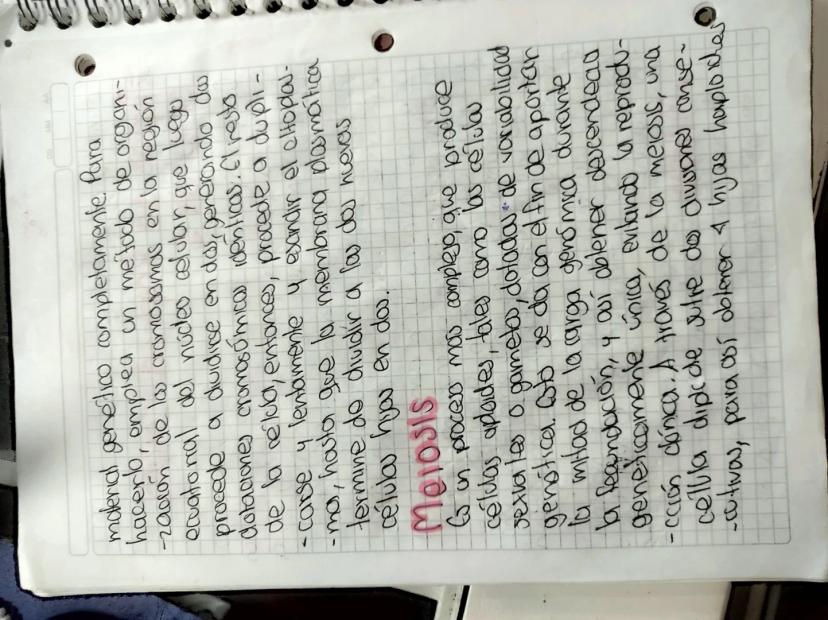 material genético completamente. Para
hacerlo, emplea un método de organi-
-zación de los cromosomas en la región
ecuatorial del núcleo celular, que luego
procede a dividirse en dos, generando dos
dotaciones cromosómicas idénticas. El resto
de la célula, entonces, procede a dupli-
-carse y lentamente y esandir el citoplas-
-ma, hasta que la membrana plasmática
termine de dividir a las dos nuevas
células hijas en dos.
Meiosis
Es un proceso más complejo, que produce
células aploides, tales como las células
sexuales o gametos, dotadas de variabilidad
genética. Esto se da con el fin de aportar
la mitad de la carga genómica durante
la fecundación, y así obtener descendencia
genéticamente única, evitando la reprodu-
-cción clónica. A través de la meiosis, una
célula diploide sufre dos divisiones conse-
-cutivas, para así obtener 4 hijas haploides